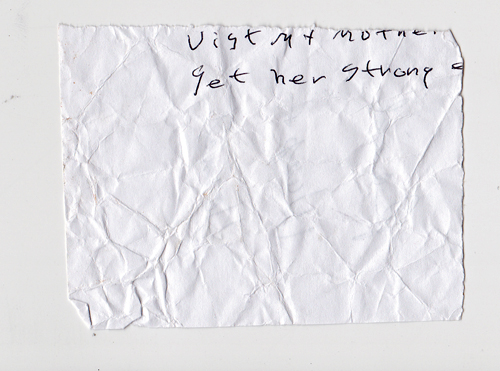 Visit My Mother
get her strong